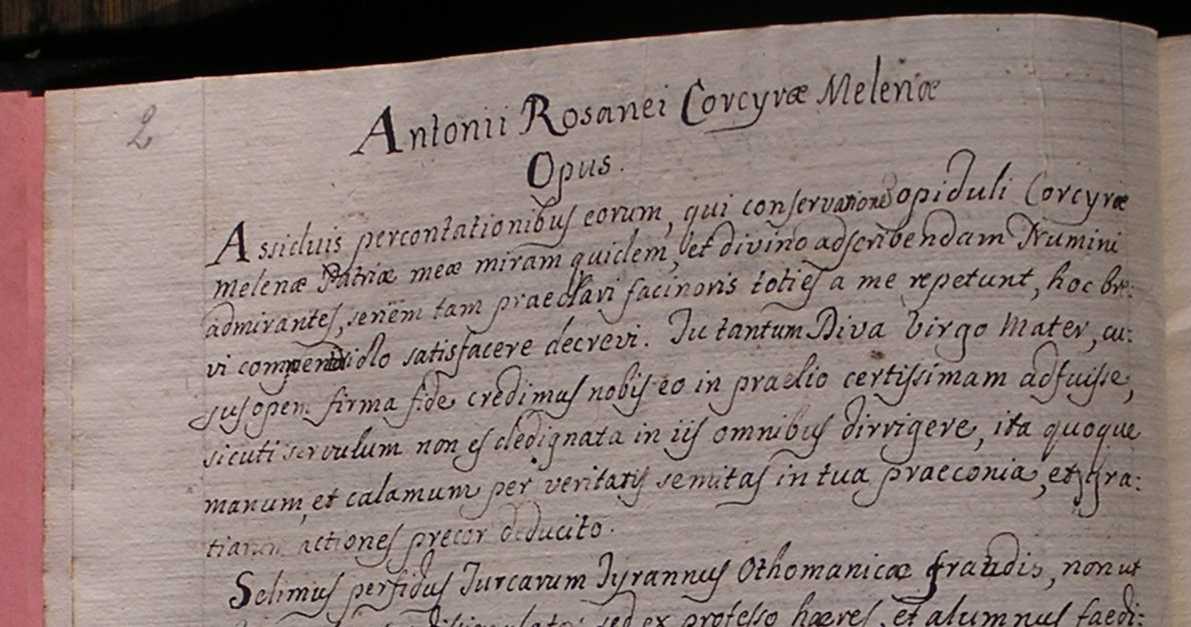 2
Antonii Rosanei Corcyræ Melenæ
Opus.
Assiduis percontationibus eorum, qui conservatione opiduli Corcyræ
Melenæ Patriæ meæ miram quidem, et divino adscribendam Numini
admirantes, seriem tam praeclari facinoris toties a me repetunt, hoc bre:
vi compendiolo satisfacere decrevi. Tu tantum Diva Virgo Mater, cu:
jus opem firma fide credimus nobis eo in praelio certissimam adfuisse,
sicuti servulum non es dedignata in iis omnibus dirrigere, ita quoque
manum, et calamum per veritatis semitas in tua praeconia, et gra:
tiarum actiones precor deducito.
Selimius perfidus Turcarum Tyrannus Othomanicæ fraudis, non ut
sed ex professo hæres, et alumnus faedi: